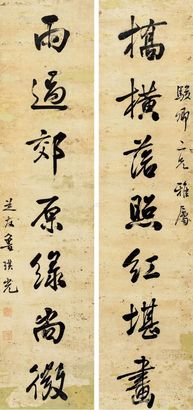 駿卿二兄雅屬
橋橫落照紅堪畫
雨過郊原綠尚微
芝友魯琪光